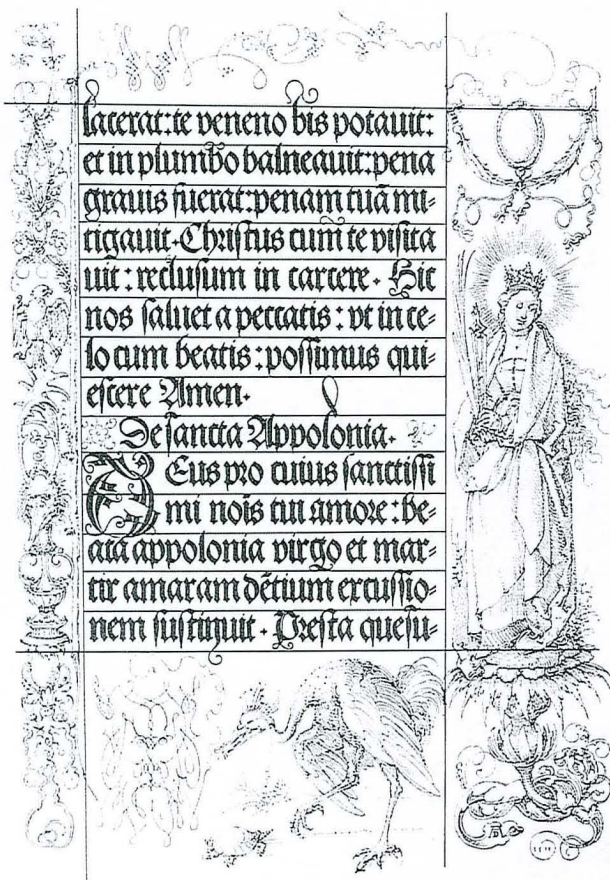 lacerat:te veneno bis potauit:
et in plumbo balneauit:pena
grauis fuerat:penam tuā mi-
tigauit. Christus cum te visita
uit: reclusum in carcere. Hic
nos saluet a peccatis: vt in ce-
lo cum beatis: possimus qui-
escere Amen.
De sancta Appolonia.
DEus pro cuius sanctissi
mi nois tui amore: be-
ata appolonia virgo et mar-
tir amaram dētium excussio-
nem sustinuit. Presta quesu-